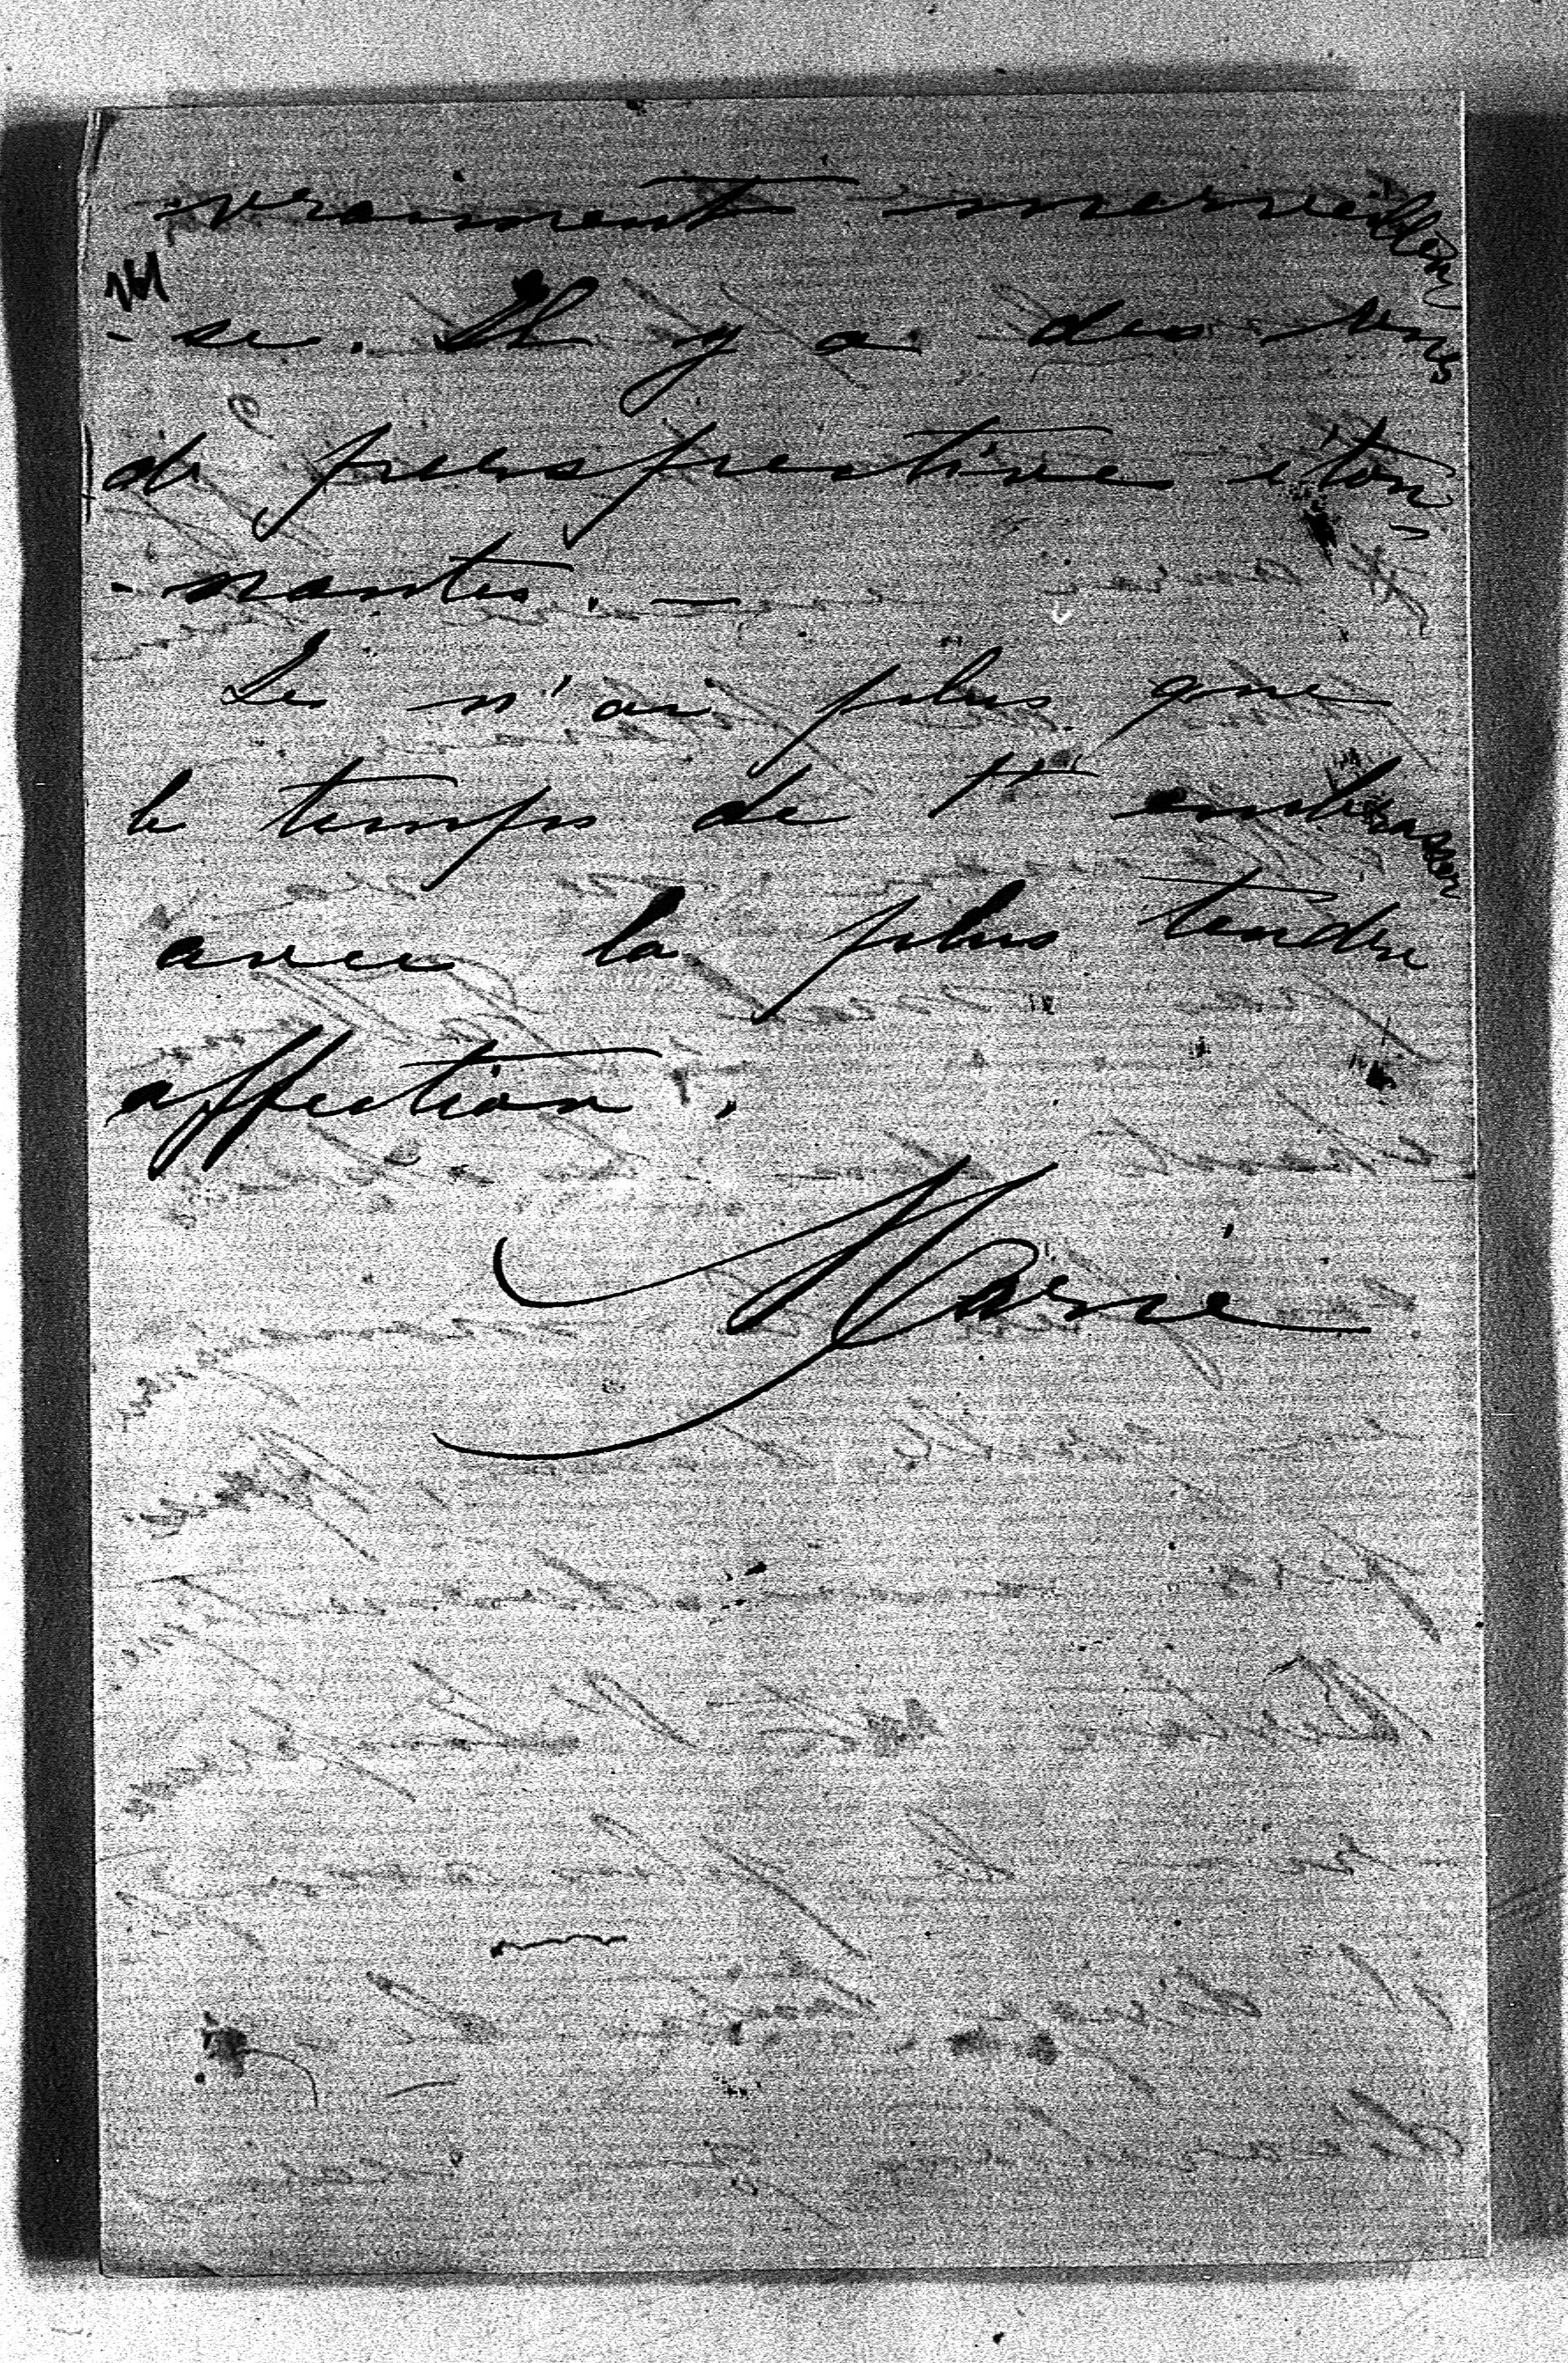 vraiment merveilleu
- se. Il y a des vues
de perspective éton-
- nantes. —
Je n'ai plus que
le temps de t'embrasser
avec la plus tendre
affection.
Marie